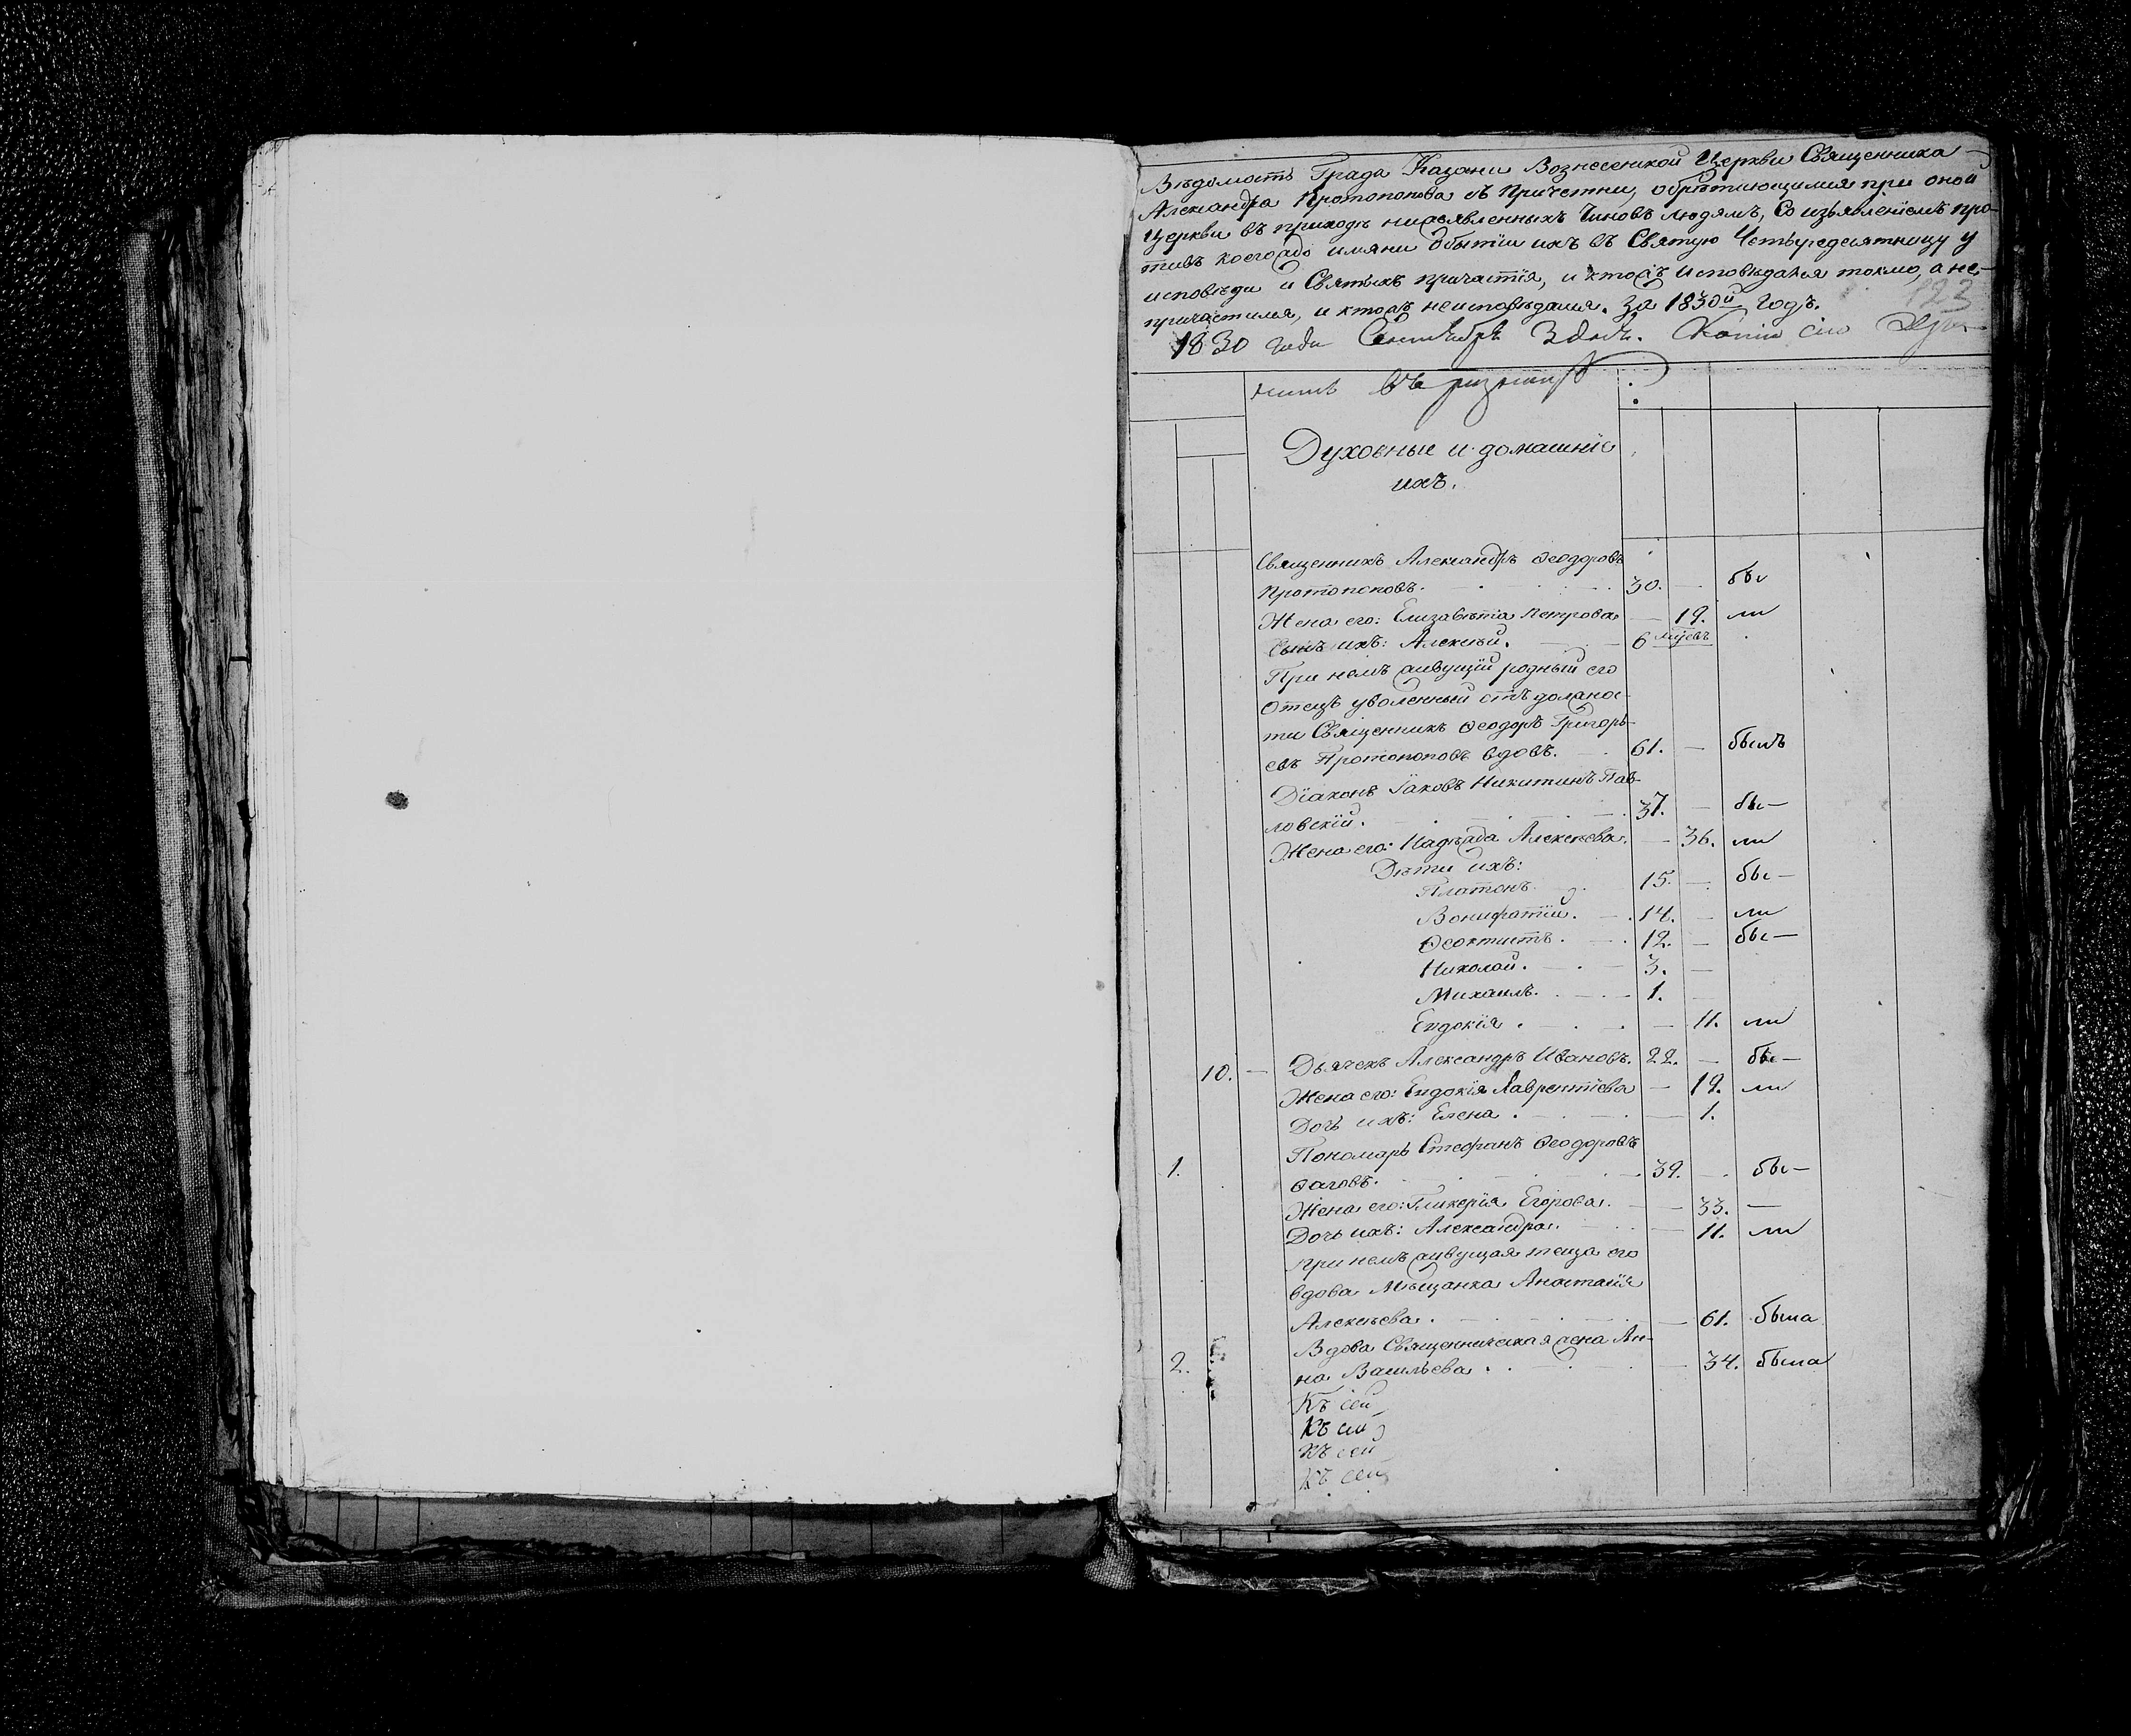 Вѣдомость Града Казани Вознесенской Церкви Священника
Александра Протопопова съ Причетни, обрѣтающимся при оной
Церкви въ приходѣ нисъявленныхъ Чиновъ людямъ, Со изъявленіемъ про-
тивъ коегождо имяни о бытіи ихъ въ Святую Четыредесятницу у
исповѣди и Святыхъ причастія, и ктожъ исповѣдался токмо, а не-
причастился, и ктожъ неисповѣдался. За 1830й Годъ.
123
1830 года Сентября 3 дня. Копію сію
въ
Духовные и домашніе
ихъ.
Священникъ Александръ Ѳеодоровъ
Протопоповъ. 30. — бы
Жена его: Елизавѣта Петрова — 19. ли
Сынъ ихъ: Алексѣй. — 6 мцевъ
При немъ живущій родный его
Отецъ уволенный отъ должнос-
ти Священникъ Ѳеодоръ Григорь-
евъ Протопоповъ вдовъ. — 61. — былъ
Діаконъ Іаковъ Никитинъ Пав-
ловскій. 37. — бы—
Жена его: Надѣжда Алексѣева. — 36. ли
Дѣти ихъ:
Платонъ. 15. — бы—
Вонифатій. — 14. — ли
Ѳеоктистъ. — 12. — бы—
Николай. — 3. —
Михаилъ. — 1. —
Евдокія. — 11. ли
10. — Дьячекъ Александръ Ивановъ. 22. — бы—
Жена его: Евдокія Лаврентіева — 19. ли
Дочь ихъ: Елена. — 1.
Пономарь Стефанъ Ѳеодоровъ
1. Ѳаговъ. 39. — бы—
Жена его: Гликерія Егорова. — 33. —
Дочь ихъ: Александра. — 11. ли
При немъ живущая теща его
вдова Мѣщанка Анастасія
Алексѣева. — 61. была
Вдова Священническая жена Ан-
2. на Васильева. — 34. была
Къ сей
Къ сей
Къ сей
Къ сей